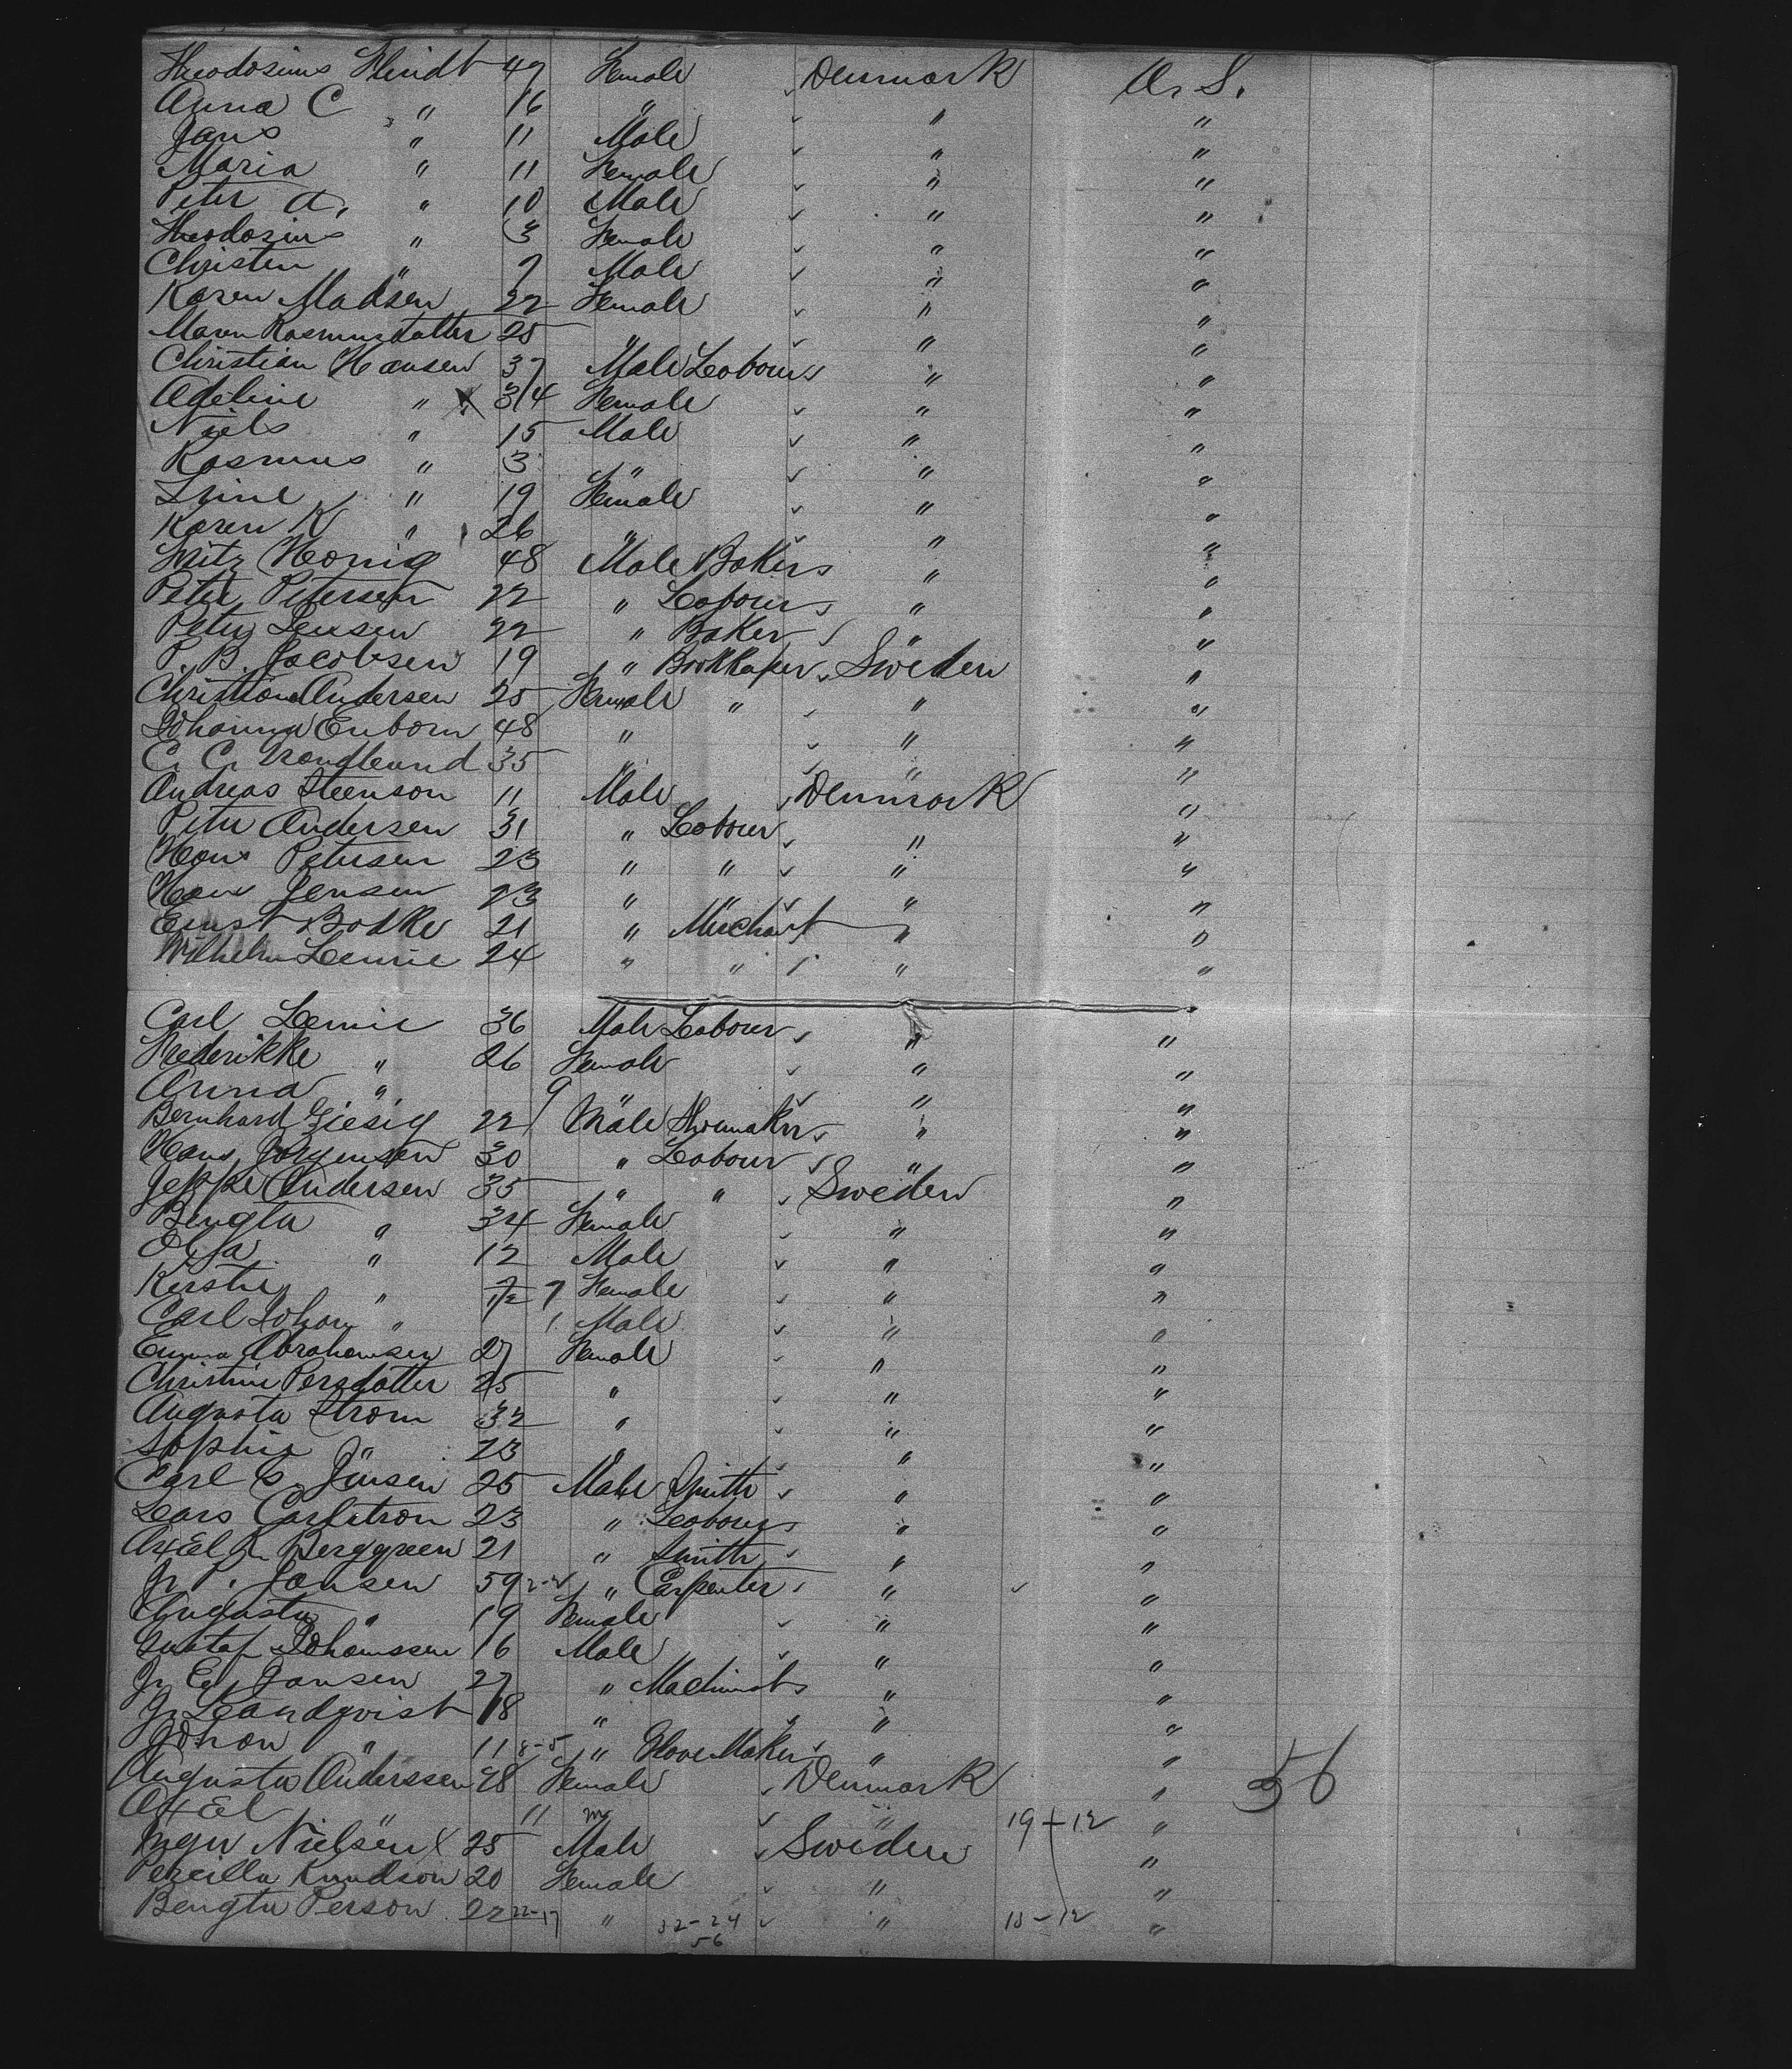 Theodosius Flindt 47 Female Denmark U. S.
Anna C " 16 " " "
Jans " 11 Male " "
Maria " 11 Female " "
Peter A. " 10 Male " "
Theodosius " 3 Female " "
Christen " 7 Male " "
Karen Madsen 22 Female " "
Maren Rasmusdatter 25 " " "
Christian Hansen 37 Male Labour " "
Adeline " 34 Female " "
Niels " 15 Male " "
Rasmus " 3 " " "
Line " 19 Female " "
Karen K " 26 " " "
Fritz Honig 48 Male Baker " "
Peter Petersen 22 " Labour " "
Peter Jensen 22 " Baker " "
P. B. Jacobsen 19 " Bookkeper Sweden "
Christiane Andersen 25 Female " " "
Johanna Enborn 48 " " "
C. C. 35 " " "
Andreas Steenson 11 Male Denmark "
Peter Andersen 31 " Labour " "
Hans Petersen 23 " " " "
Hans Jensen 23 " " " "
Ernst Bodke 21 " Merchant " "
Wilhelm Lemie 24 " " " "
Carl Lemie 36 Male Labour " "
Frederikke " 26 Female " "
Anna " 9 " " "
Bernhard Giesig 22 Male Shoemaker " "
Hans Jorgensen 30 " Labour " "
Jeppe Andersen 35 " " Sweden "
Bengta " 34 Female " "
Ola " 12 Male " "
Kerstie " 7 Female " "
Carl Johan " 1 Male " "
Emma Abrahamsen 27 Female " "
Christine Persdatter 25 " " "
Augusta Strom 32 " " "
Sophie " 23 " " "
Carl C. Jensen 25 Male Smith " "
Lars Carlstrom 23 " Labour " "
Axel R. Berggreen 21 " Smith " "
J. P. Jansen 59 2-2 " Carpenter " "
Augusta " 19 Female " "
Gustaf Johanssen 16 Male " "
J. E. Jansen 27 " Machinist " "
J. Landqvist 18 " " "
Johan " 11 8-5 " Glove Maker " "
Augusta Anderssen 28 Female Denmark " 56
Axel " 11 m " 19+12 "
Inger Nielsen X 25 Male Sweden "
Percilla Knudson 20 Female " "
Bengta Person 22 22-17 " 32-24 " 13-12 "
56